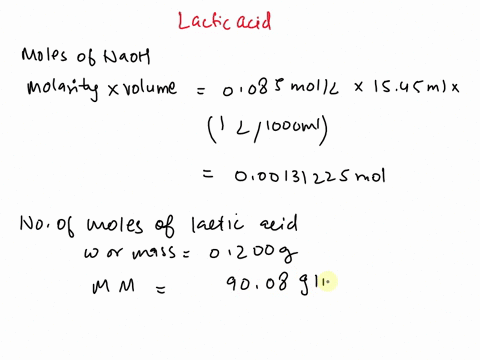 Lactic acid
Moles of NaOH
Molarity x volume = 0.085 mol/L x 15.45 ml x
(1 L/1000ml)
= 0.00131225 mol
No. of moles of lactic acid
w or mass = 0.200g
MM = 90.08 g/